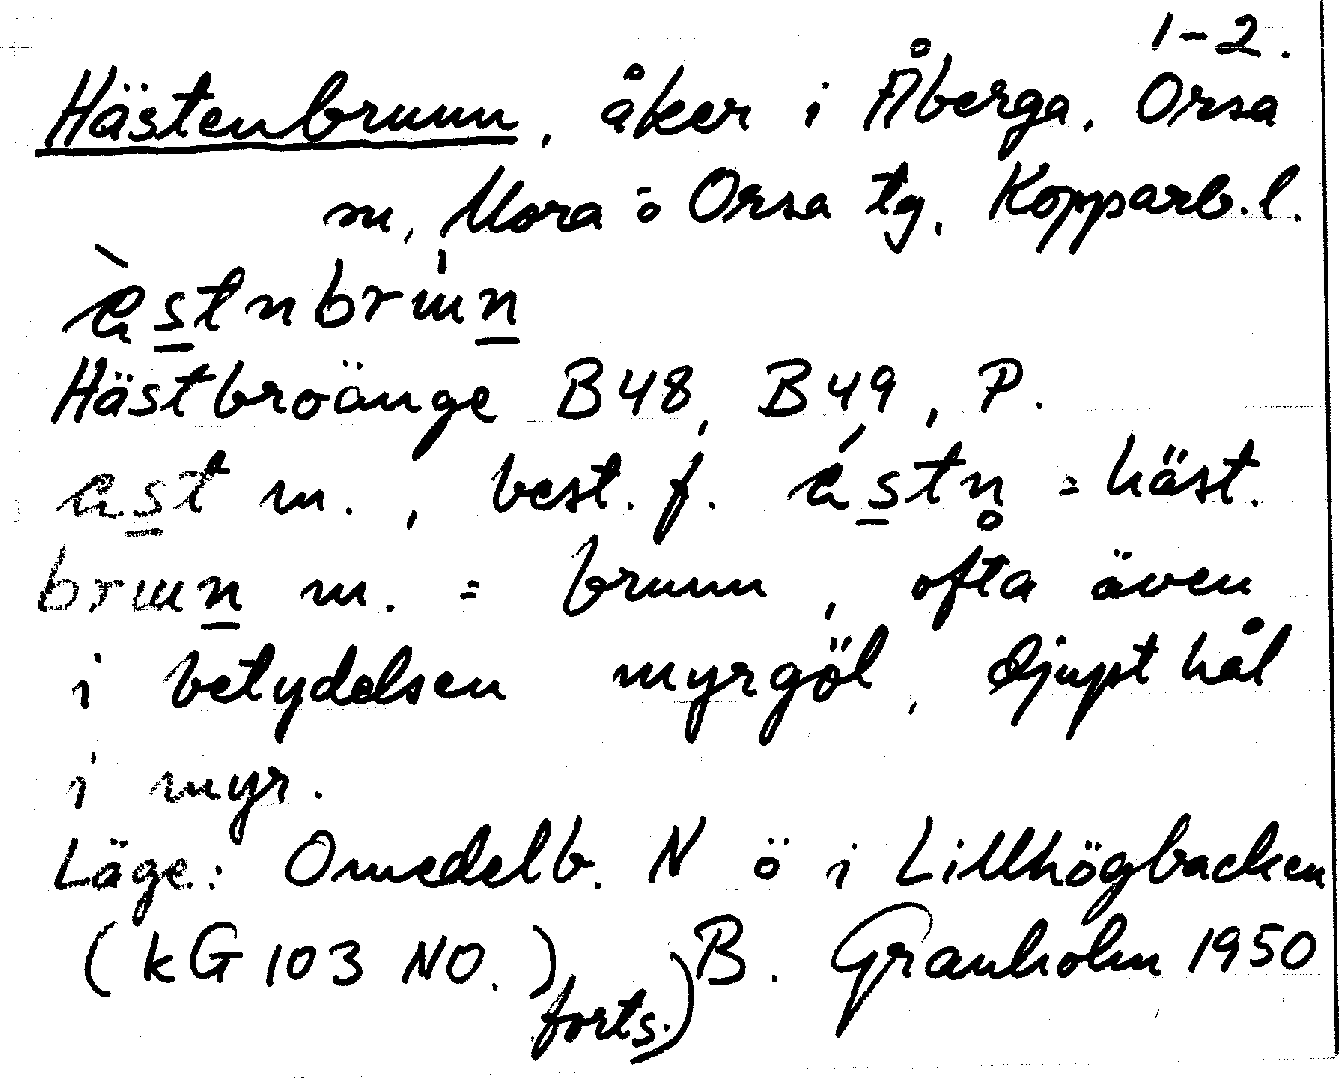 1-2.
Hästenbrunn, åker i Åberga, Orsa
m, Mora o Orsa tg, Kopparb. l.
Hästbroänge B48, B49, P.
m., best. f. = häst.
m. = brunn, ofta även
i betydelsen myrgöl, djupt hål
i myr.
Läge: Omedelb. N ö i Lillhögbacken
(kG 103 NO.) B. Granholm 1950
forts.)